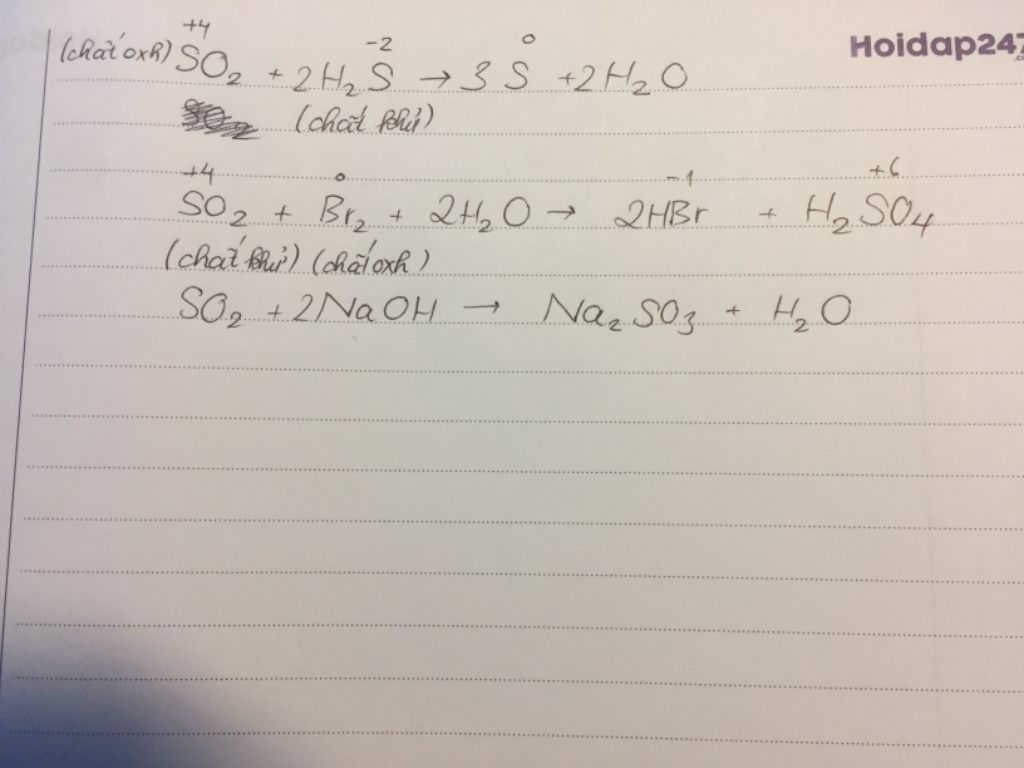 Hoidap247
+4 -2 0
(chất oxh) SO2 + 2H2S → 3S + 2H2O
(chất khử)
+4 0 -1 +6
SO2 + Br2 + 2H2O → 2HBr + H2SO4
(chất khử) (chất oxh)
SO2 + 2NaOH → Na2SO3 + H2O